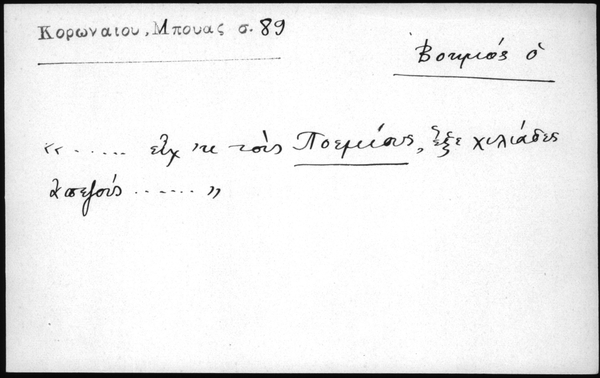 Κορωναιου, Μπουας σ. 89
Βοεμιός ὁ
«..... εἶχ 'πε τοὺς Ποεμίους, ἕξε χιλιάδες
ἀπεζούς ...... »